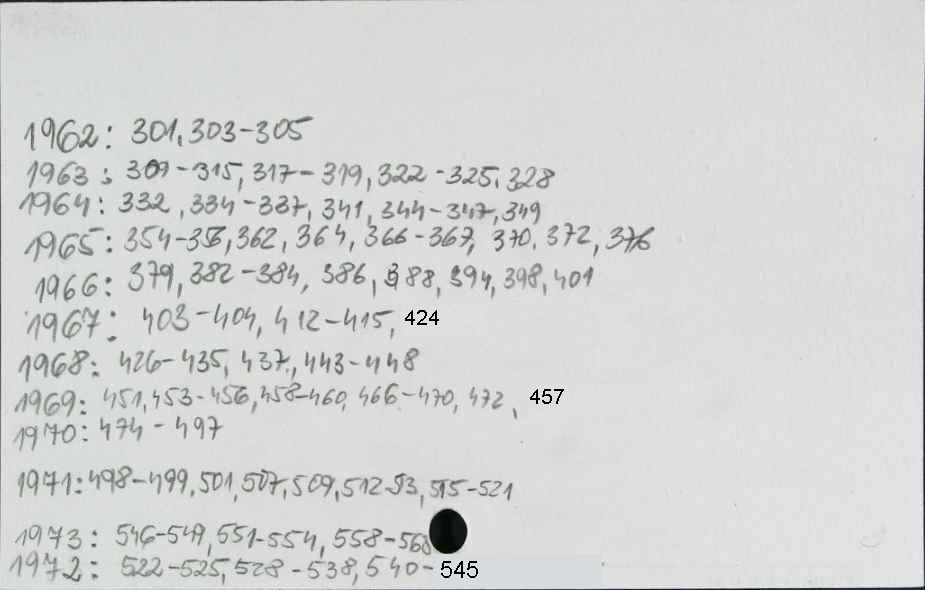 1962: 301, 303-305
1963: 309-315, 317-319, 322-325, 328
1964: 332, 334-337, 341, 344-347, 349
1965: 354-356, 362, 364, 366-367, 370, 372, 376
1966: 379, 382-384, 386, 388, 394, 398, 401
1967: 403-404, 412-415, 424
1968: 426-435, 437, 443-448
1969: 451, 453-456, 458-460, 466-470, 472, 457
1970: 474-497
1971: 498-499, 501, 507, 509, 512-513, 515-521
1973: 546-549, 551-554, 558-568
1972: 522-525, 528-538, 540-545